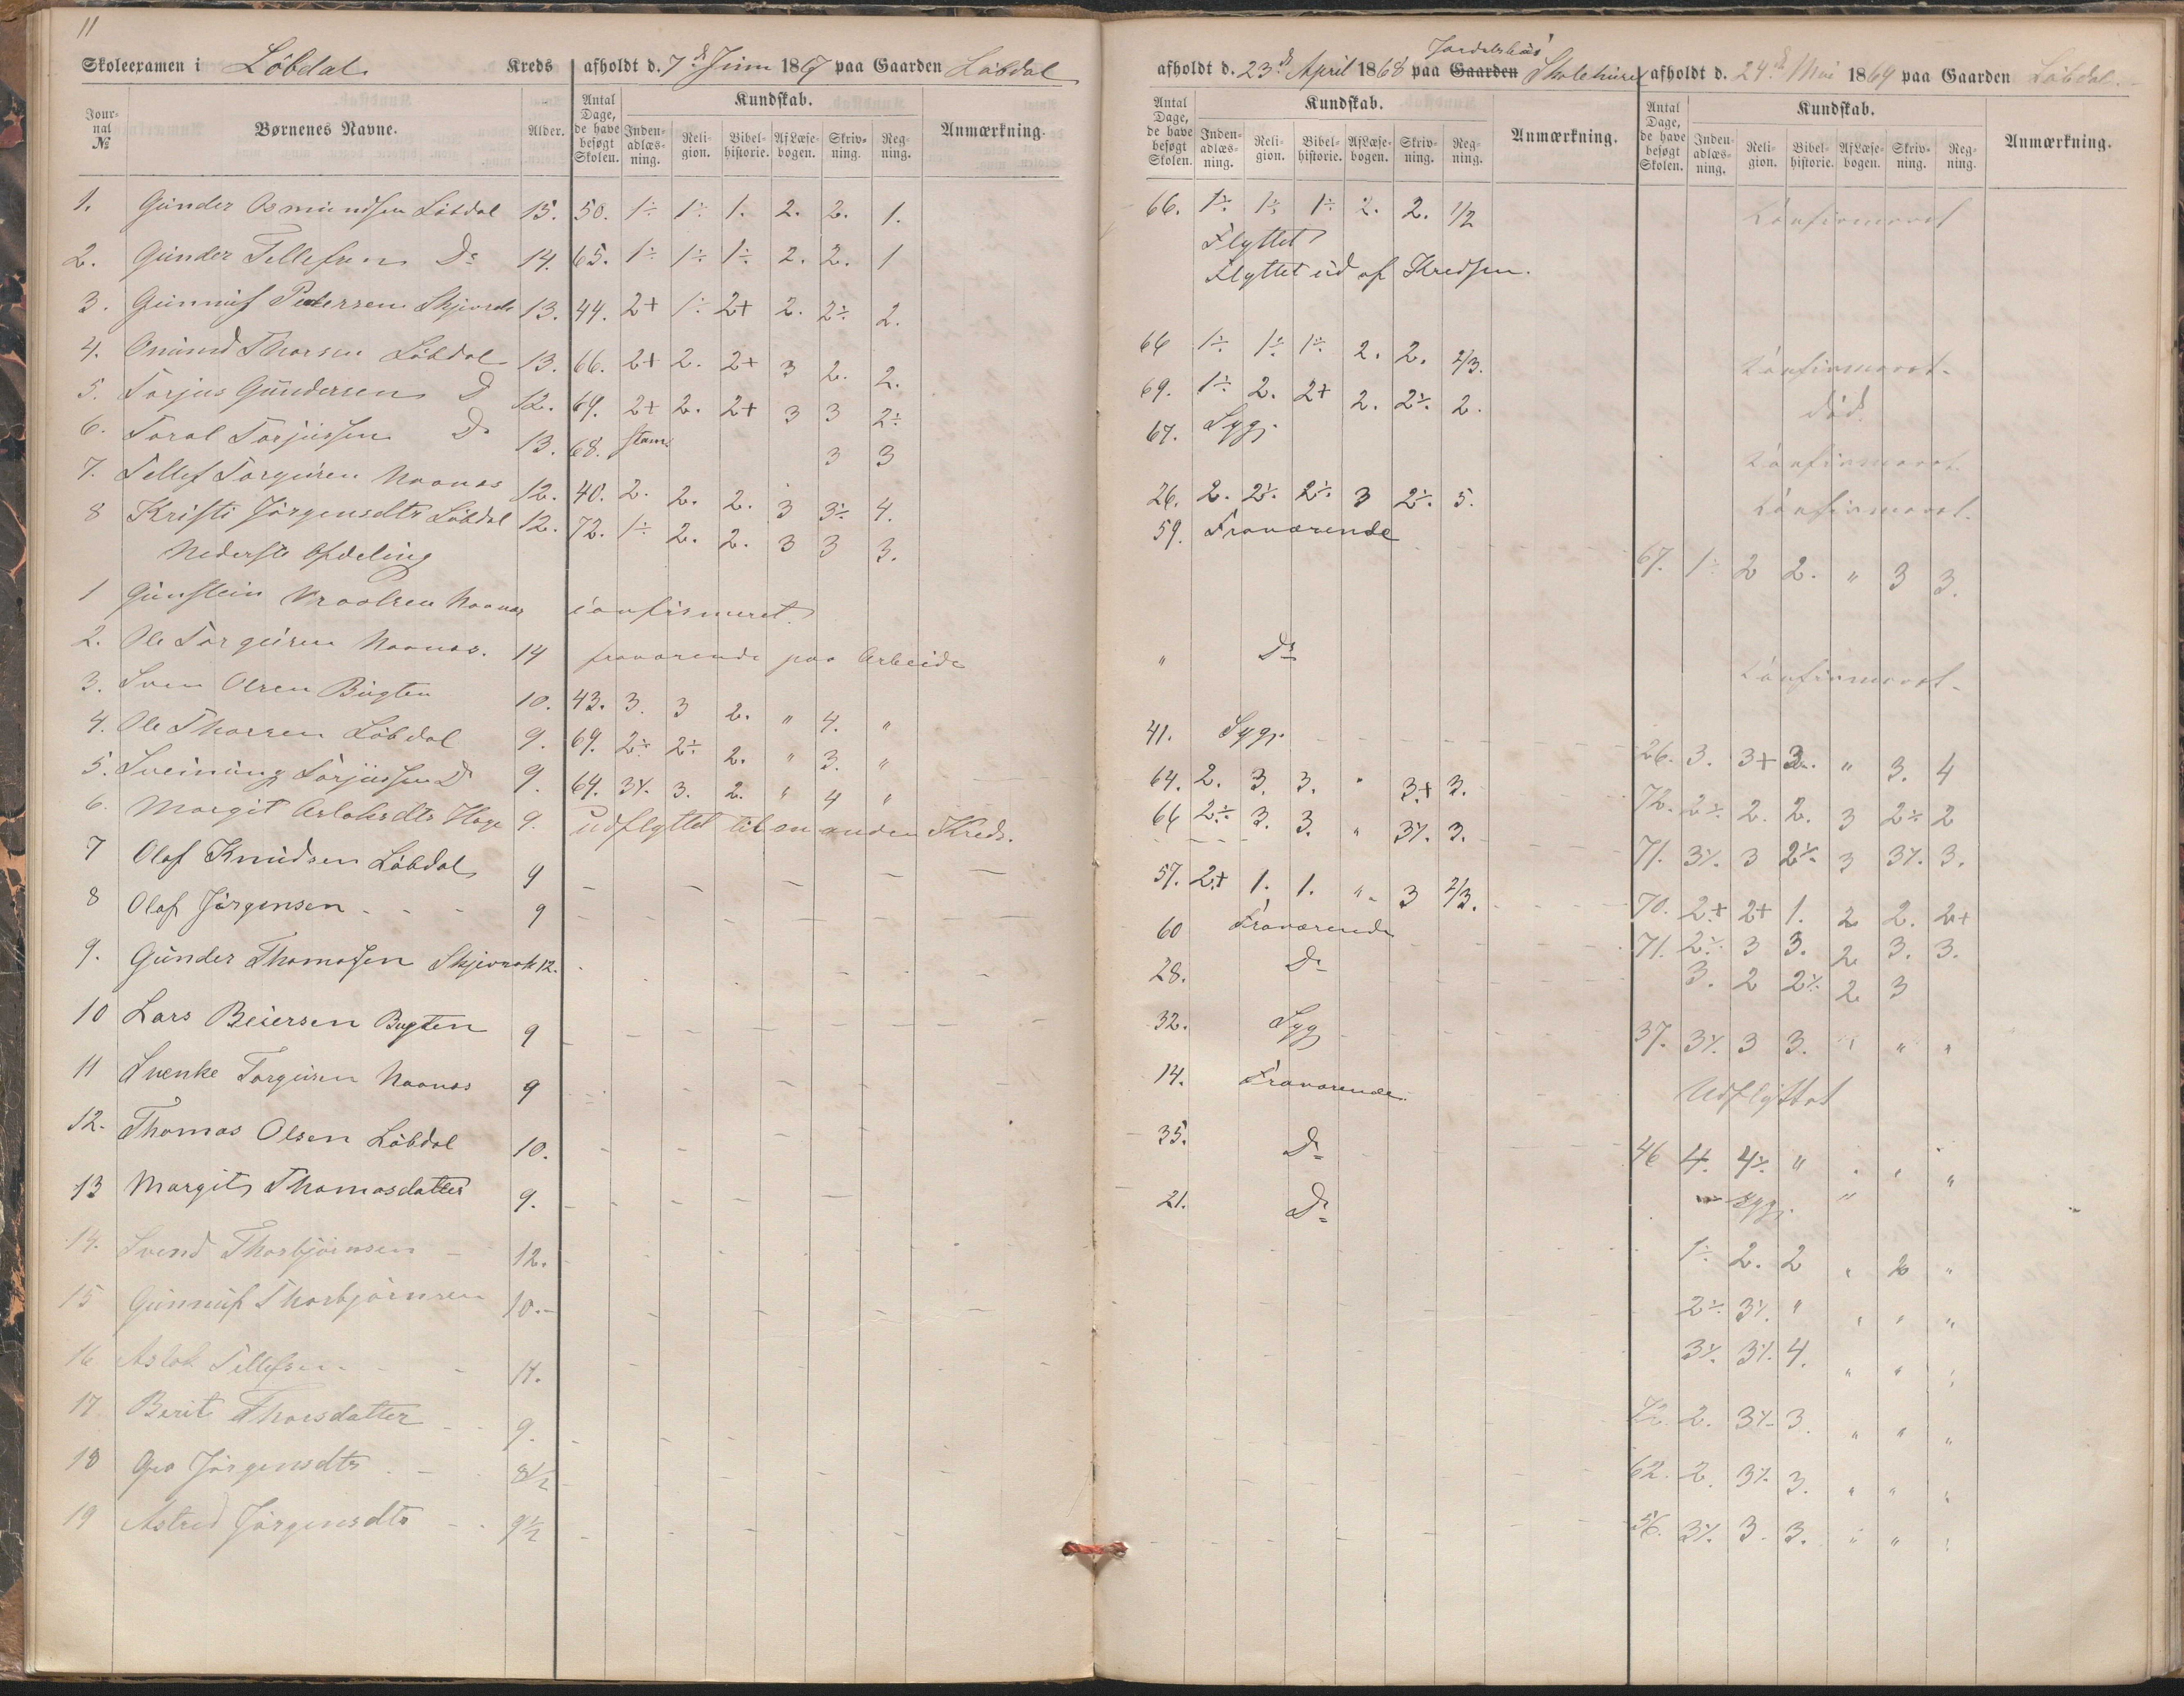 11
Skoleexamen i Löbdal Kreds afholdt d. 7de Juni 1867 paa Gaarden Löbdal
Journal № Børnenes Navne. Alder. Antal Dage, de have besøgt Skolen. Kundskab. Indenadlæsning. Religion. Bibelhistorie. Af Læsebogen. Skrivning. Regning. Anmærkning.
1. Gunder Osmundsen Löbdal 15. 50. 1÷ 1÷ 1. 2. 2. 1.
2. Gunder Tellefsen Do 14. 65. 1÷ 1÷ 1÷ 2. 2. 1
3. Gunnuf Pedersen 13. 44. 2+ 1÷ 2+ 2. 2÷ 2.
4. Onund Thorsen Löbdal 13. 66. 2+ 2. 2+ 3 2. 2.
5. Torjus Gundersen D 12. 69. 2+ 2. 2+ 3 3 2÷
6. Torol Torjussen Do 13. 68. stam. 3 3
7. Tellef Torgusen Naanes 12. 40. 2. 2. 2. 3 3÷ 4.
8 Kristi Jörgensdtr Löbdal 12. 72. 1÷ 2. 2. 3 3 3.
Nederste Afdeling
1 Gunstein Vraalsen Naanes confirmeret.
2. Ole Torgusen Naanes. 14 fraværende paa Arbeide
3. Sven Olsen Bugten 10. 43. 3. 3 2. " 4. "
4. Ole Thorsen Löbdal 9. 69. 2÷ 2÷ 2. " 3. "
5. Sveinung Torjussen Do 9. 64. 3÷. 3. 2. " 4 "
6. Margit Aslaksdtr Hage 9. Udflyttet til en anden Kreds.
7 Olaf Knudsen Löbdal 9
8 Olaf Jörgensen - - - 9
9. Gunder Thomassen 12.
10 Lars Beiersen Bugten 9
11 Svenke Torgusen Naanes 9
12. Thomas Olsen Löbdal 10.
13 Margit Thomasdatter 9.
14. Svend Thorbjörnsen - 12.
15 Gunnuf Thorbjörnsen 10.-
16 Aslak Tellefsen - - 11.
17 Berit Thorsdatter - - 9.
18 Jörgensdtr - - 8½
19 Astrid Jörgensdtr - - 9½
afholdt d. 23de April 1868 paa Gaarden Skolehuset
Antal Dage, de have besøgt Skolen. Kundskab. Indenadlæsning. Religion. Bibelhistorie. Af Læsebogen. Skrivning. Regning. Anmærkning.
66. 1÷. 1÷ 1÷ 2. 2. 1/2
Flyttet
Flyttet ud af Kredsen.
66 1÷. 1÷. 1÷. 2. 2. 2/3.
69. 1÷ 2. 2+ 2. 2÷. 2.
67. Syg.
26. 2. 2÷. 2÷. 3 2÷. 5.
59. Fraværende
" Do
41. Syg.
64. 2. 3. 3. " 3+ 3.
66 2÷ 3. 3. " 3÷. 3.
57. 2+ 1. 1. " 3 2/3.
60 Fraværende
28. Do
32. Syg
14. Fraværende.
35. Do
21. Do
afholdt d. 24de Mai 1869 paa Gaarden Löbdal.
Antal Dage, de have besøgt Skolen. Kundskab. Indenadlæsning. Religion. Bibelhistorie. Af Læsebogen. Skrivning. Regning. Anmærkning.
Confirmeret
Confirmeret.
död.
Confirmeret.
Confirmeret.
67. 1÷ 2 2. " 3 3.
Confirmeret.
26. 3. 3+ 3. " 3. 4
72. 2÷ 2. 2. 3 2÷ 2
71. 3÷. 3 2÷. 3 3÷. 3.
70. 2+ 2+ 1. 2 2. 2+
71. 2÷. 3 3. 2 3. 3.
3. 2 2÷ 2 3
37. 3÷. 3 3. " " "
Udflyttet
46 4. 4÷. " . " "
Syg. "
1÷. 2. 2 " 2 "
2÷. 3÷. " " " "
3÷. 3÷. 4. " " "
72. 2. 3÷. 3. " " "
62. 2. 3÷. 3. " " "
56. 3÷. 3. 3. " " "